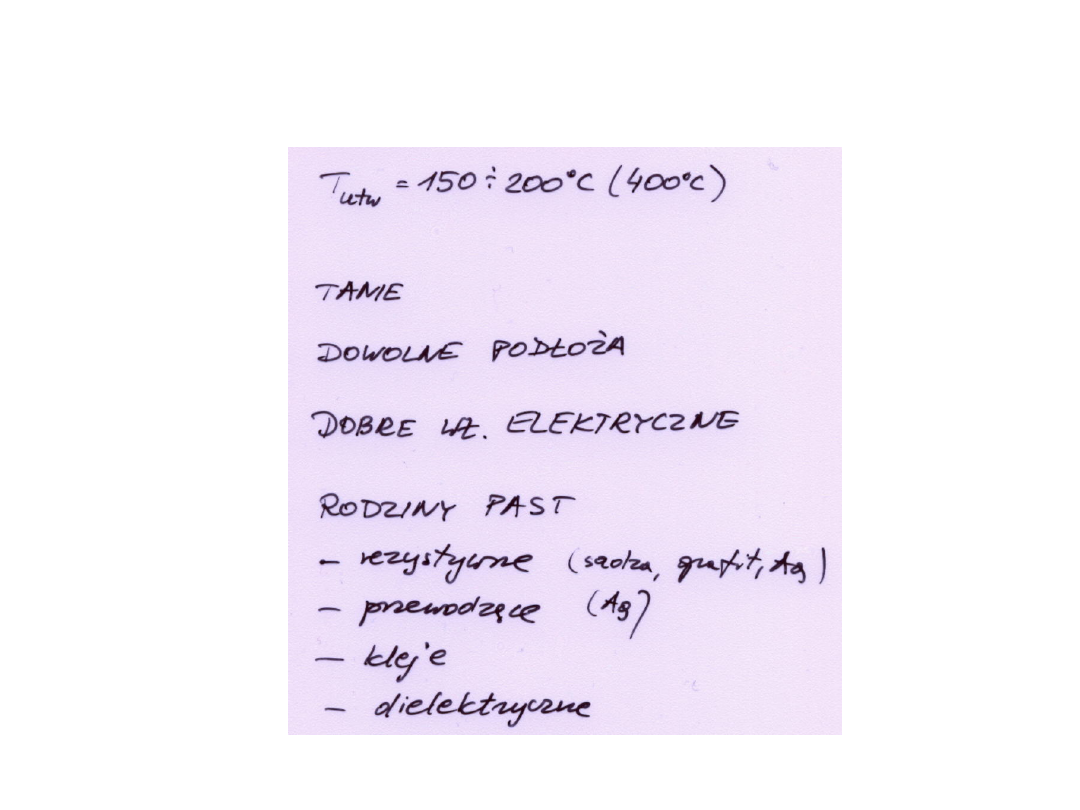 Tutw = 150 ÷ 200°C (400°C)
TANIE
DOWOLNE PODŁOŻA
DOBRE WŁ. ELEKTRYCZNE
RODZINY PAST
- rezystywne (sadza, grafit, Ag)
- przewodzące (Ag)
- kleje
- dielektryczne